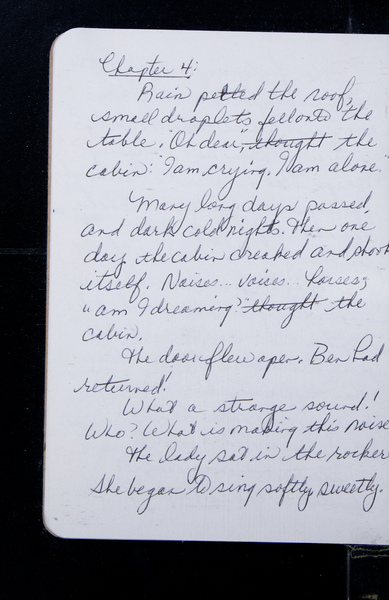 Chapter 4:
Rain pelted the roof,
small droplets fell onto the
table. "Oh dear," thought the
cabin: I am crying. I am alone.
Many long days passed
and dark cold nights. Then one
day the cabin creaked and shook
itself. Noises... voices... horses;
"am I dreaming?" thought the
cabin.
The door flew open. Ben had
returned!
What a strange sound!
Who? What is making this noise
The lady sat in the rocker
She began to sing softly, sweetly.